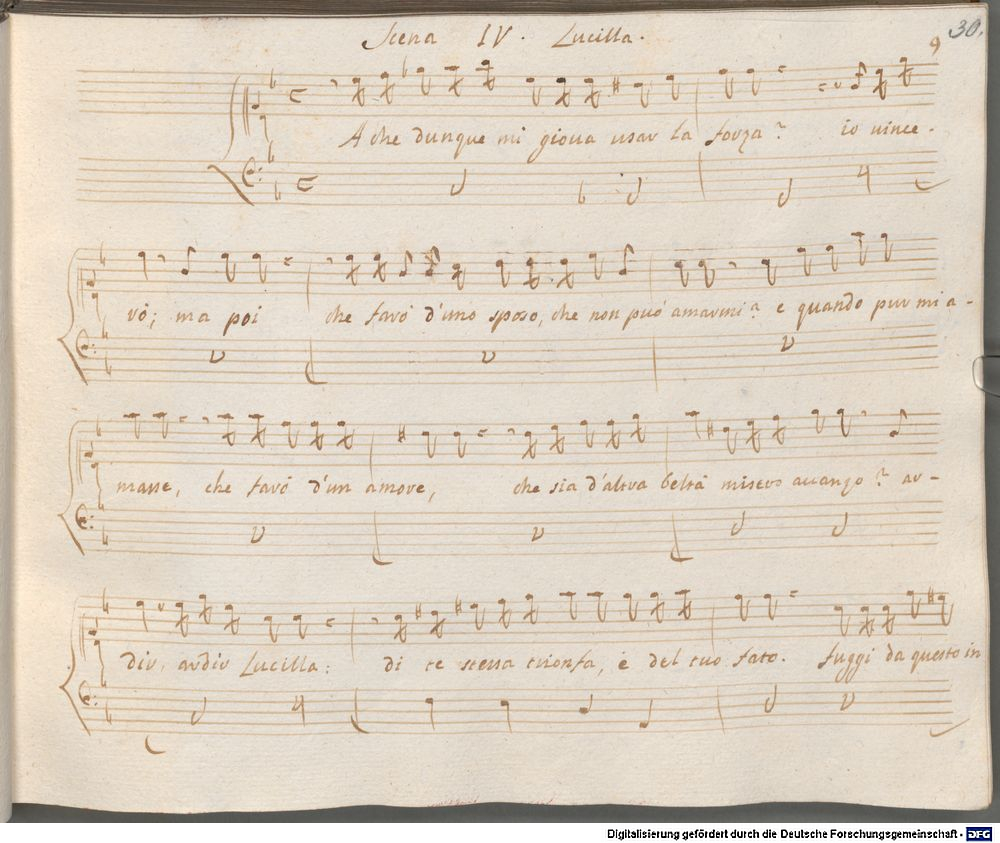 30.
9
Scena IV. Lucilla.
A che dunque mi gioua usar la forza? io vince-
rò; ma poi che farò d'uno sposo, che non può amarmi? e quando pur mi a-
masse, che farò d'un amore, che sia d'altra beltà misero auanzo? ar-
dir, ardir Lucilla: di te stessa trionfa, e del tuo fato. fuggi da questo in
Digitalisierung gefördert durch die Deutsche Forschungsgemeinschaft - DFG